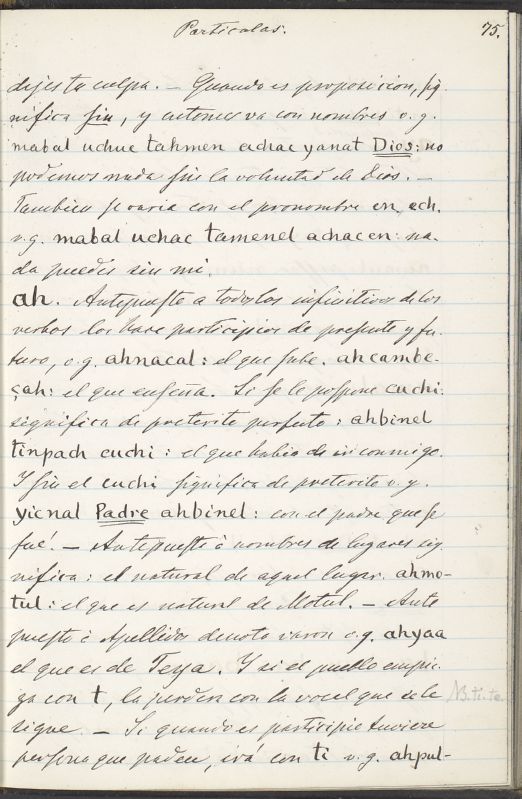 Particulas. 75.
dejes tu culpa. — Quando es proposicion, sig-
nifica sin, y entonces va con nombres v. g.
mabal uchuc tahmen achac yanat Dios: no
podemos nada sin la voluntad de Dios. —
Tambien se varia con el pronombre en, ech.
v. g. mabal uchac tamenel achacen: na-
da puedes sin mi.
ah. Antepuesto a todos los infinitivos de los
verbos los hace participios de presente y fu-
turo, v. g. ahnacal: el que sube. ahcambe-
çah: el que enseña. Si se le pospone cuchi:
significa de preterito perfecto: ahbinel
tinpach cuchi: el que habia de ir conmigo.
Y sin el cuchi significa de preterito v. g.
yicnal Padre ahbinel: con el padre que se
fué. — Antepuesto á nombres de lugares sig-
nifica: el natural de aquel lugar. ahmo-
tul: el que es natural de Motul. — Ante
puesto á Apellidos denota varon v. g. ahyaa
el que es de Teya. Y si el pueblo empie-
za con t, la pierden con la vocal que se le
sigue. — Si quando es participio tuviere
persona que padece, irá con ti v. g. ahpul-
N.B. ti. te.